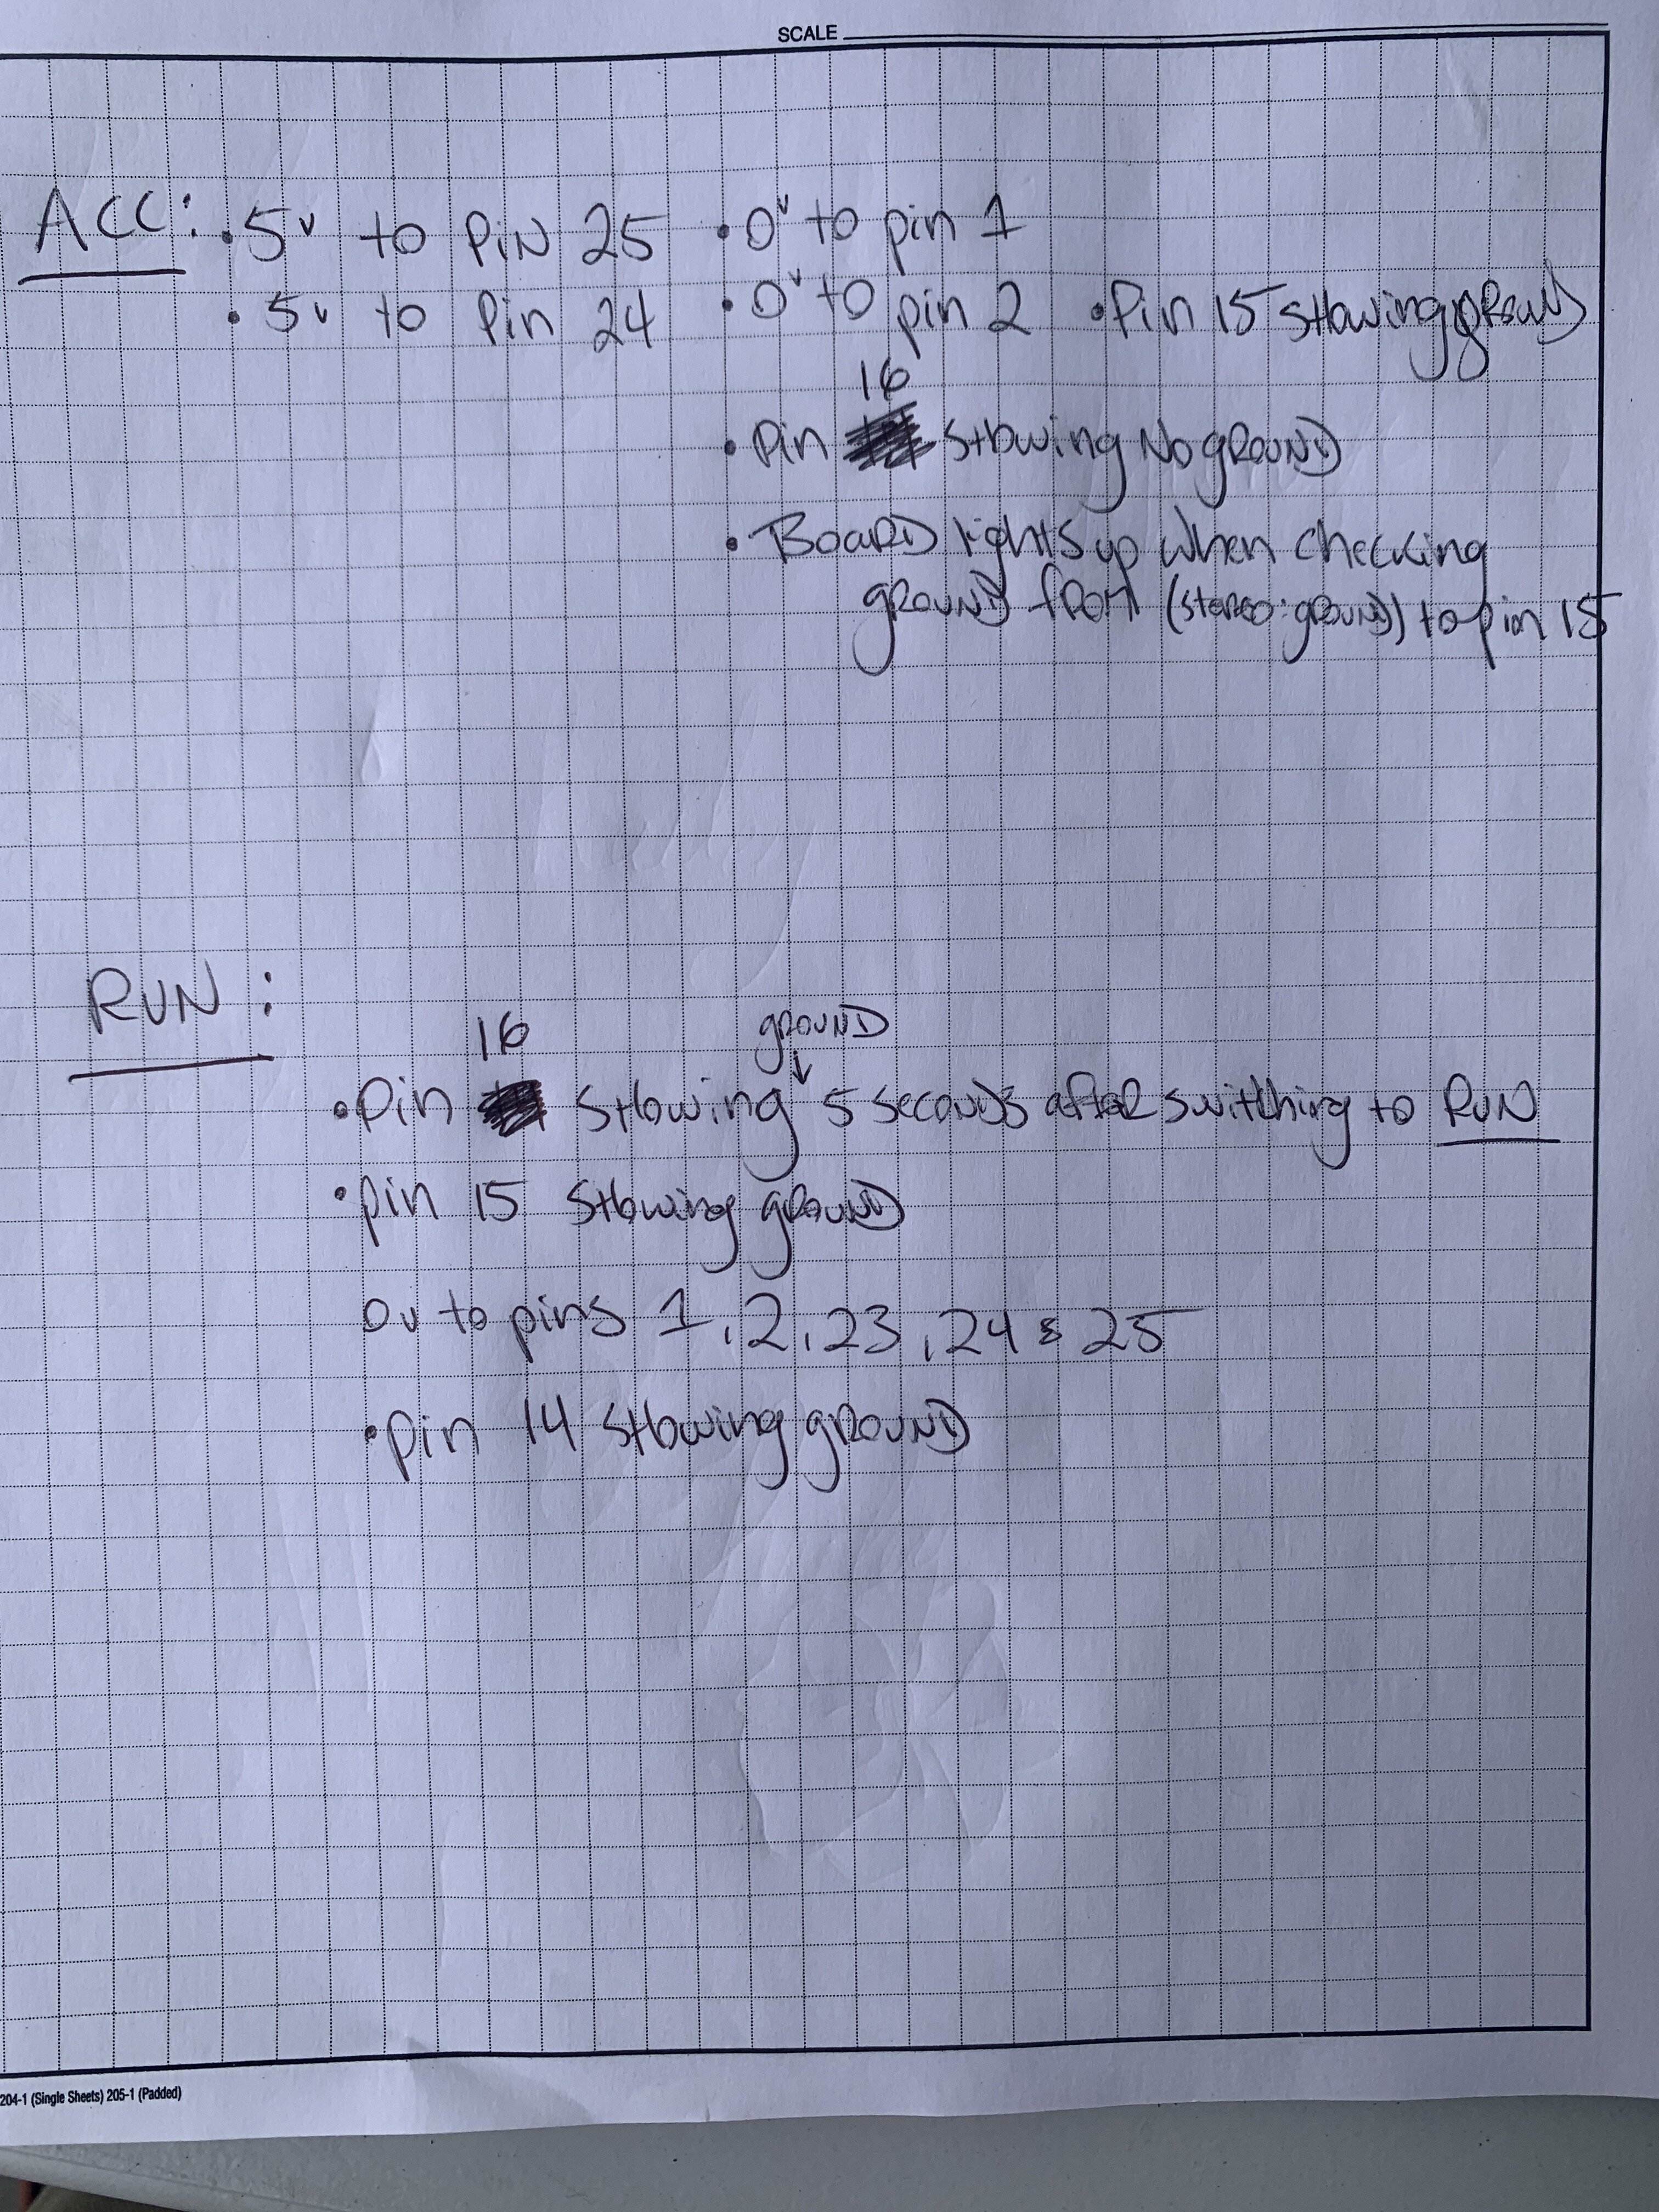 SCALE
ACC: • 5v to PiN 25 • 0v to pin 1
• 5v to Pin 24 • 0v to pin 2 • Pin 15 sHowing gRouND
16
• Pin sHowing No gRouND
• BoaRD lights up when checking
gRouND fRom (stereo:gRouND) to pin 15
RUN:
16 gRouND
• Pin sHowing ↓ 5 secoNDs afteR switching to RUN
• pin 15 sHowing gRouND
0v to pins 1, 2, 23, 24 & 25
• pin 14 sHowing gRouND
204-1 (Single Sheets) 205-1 (Padded)